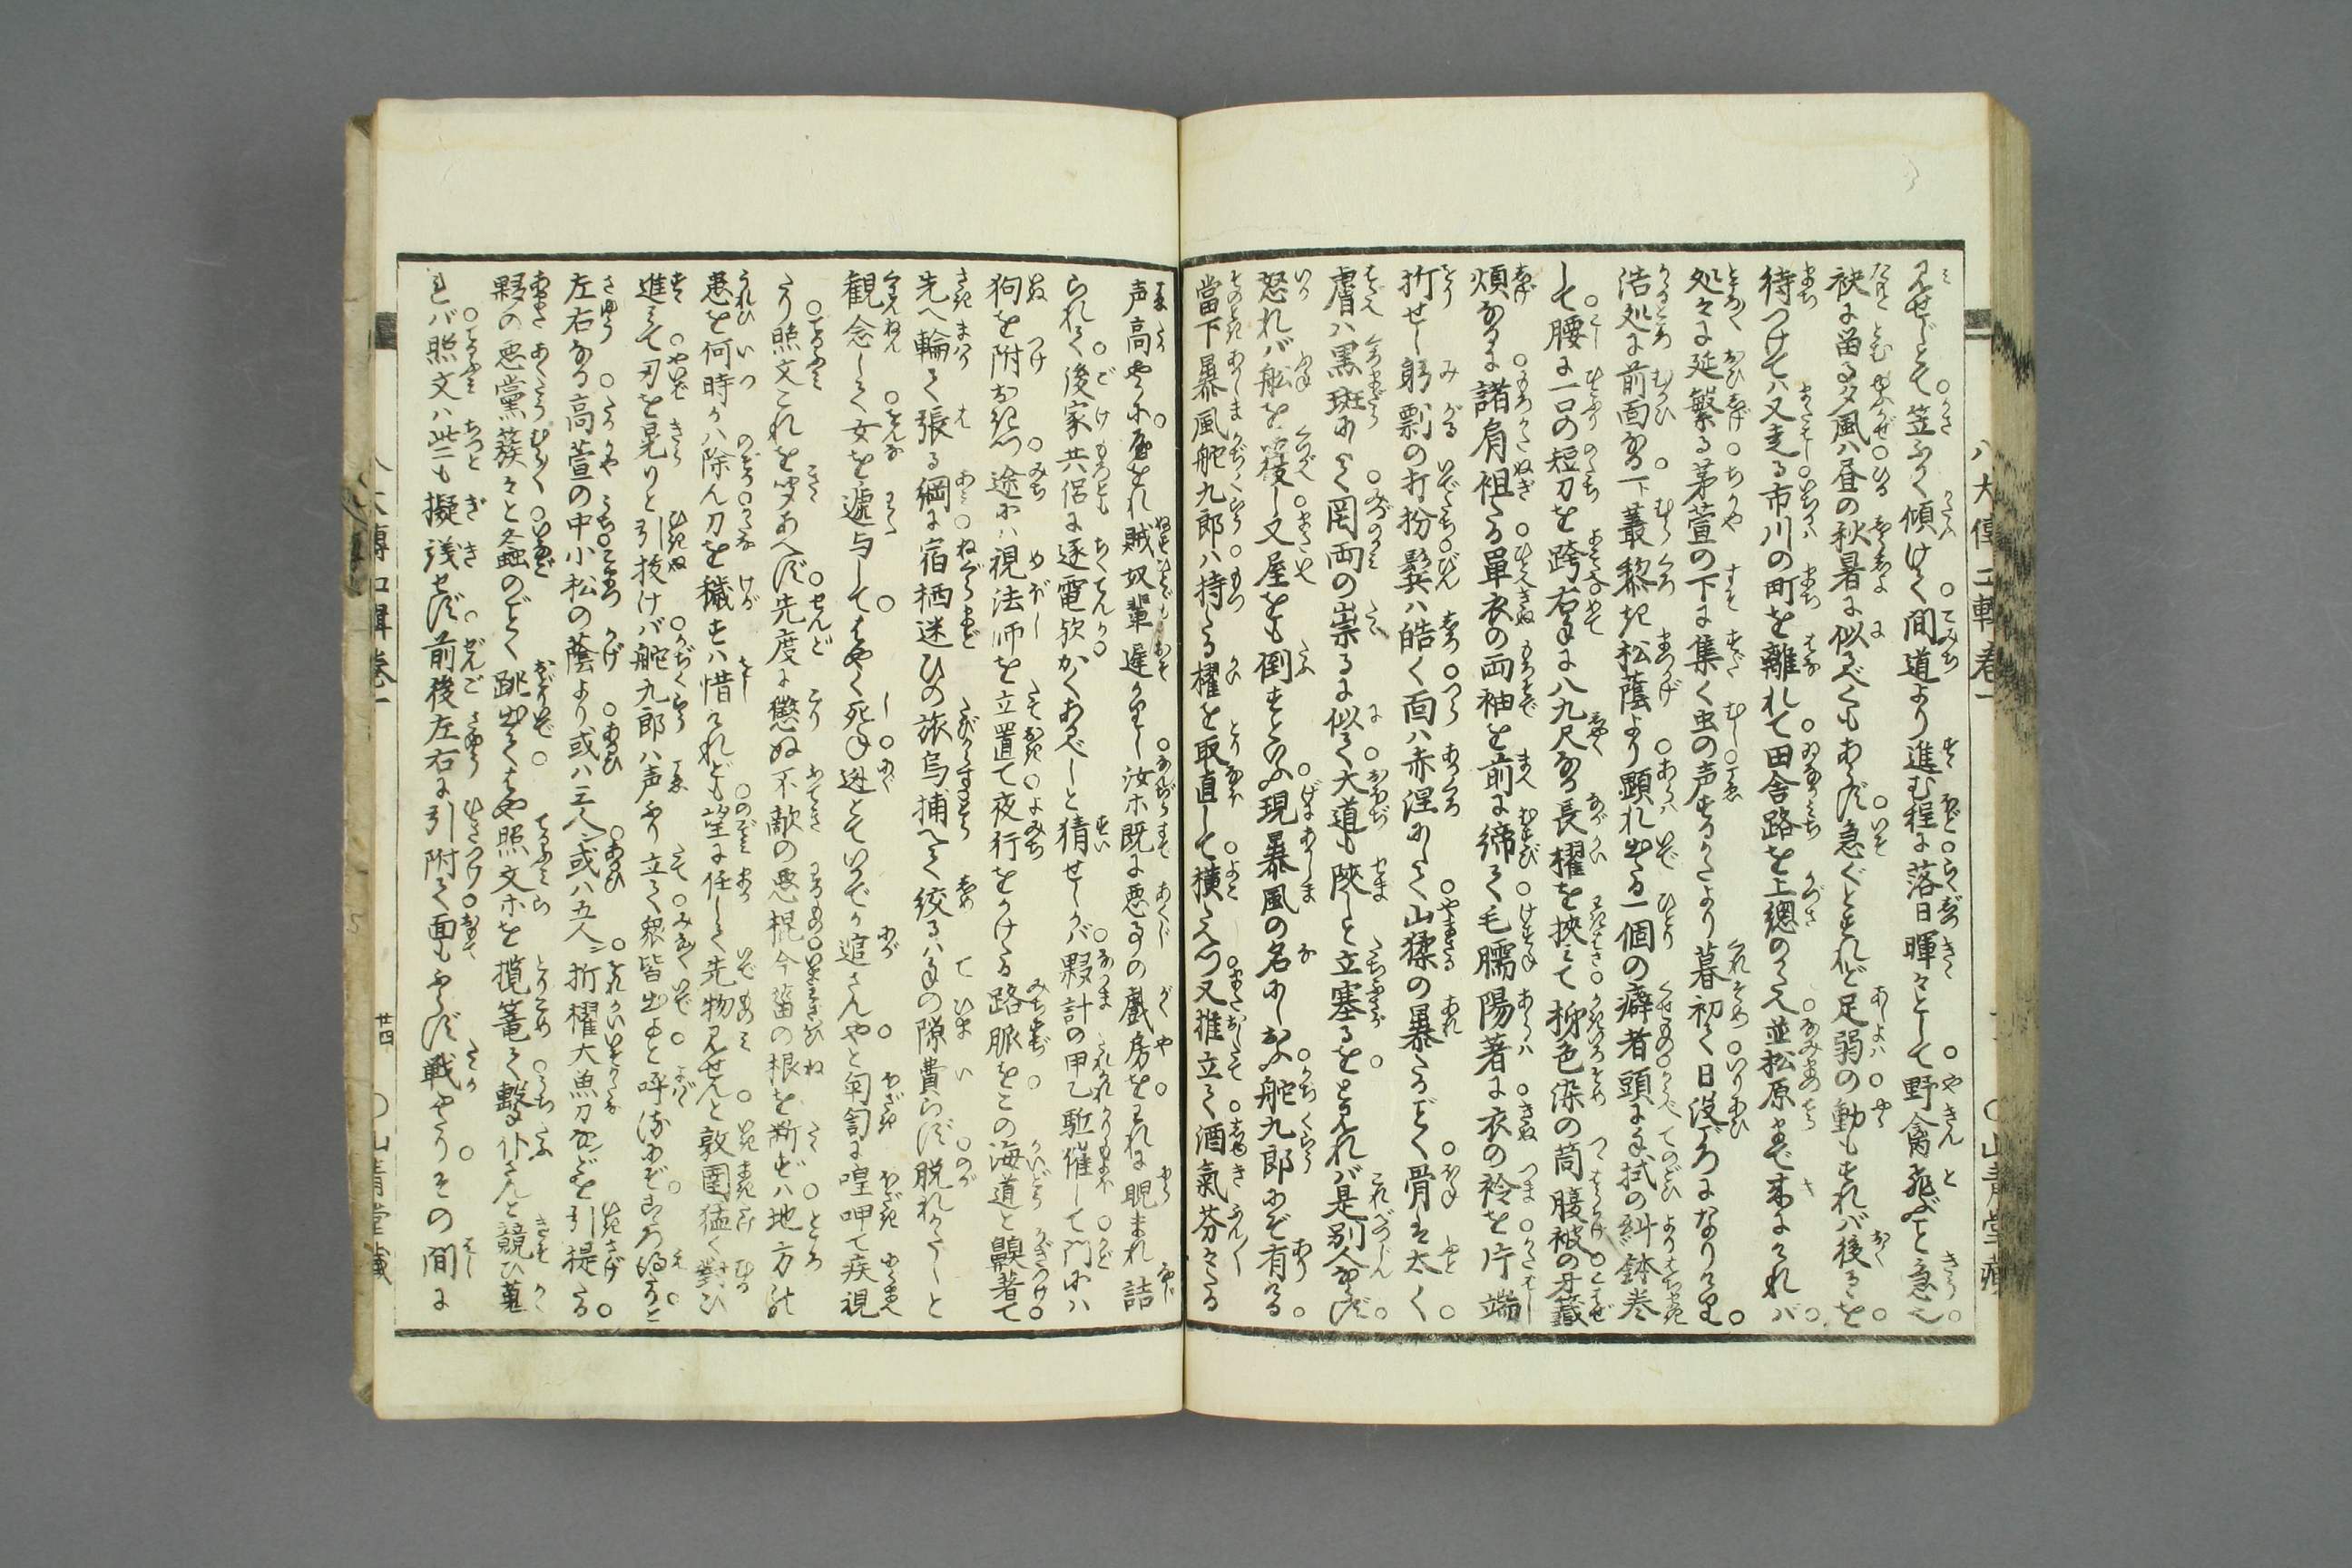 見せじとて笠ふかく傾けて間道より進む程に落日暉々として野禽飛ぶこと急也
袂に畄る夕風ハ昼の秋暑に似るべくもあらず急ぐとすれど足弱の動もすれバ後るゝを
待つけてハ又走る市川の町を離れて田舎路を上總のかた並松原まで来にけれバ
処々に延繁る茅萱の下に集く虫の声するかたより暮初て日没ごろになりにけり
浩処に前面なる一叢黎き松蔭より顕れ出たる一個の癖者頭に手拭の糾鉢巻
して腰に一口の短刀を跨右手に八九尺なる長櫂を挾みて柳色染の筒腹被の牙藏
煩なるに諸肩袒たる單衣の両袖を前に締て毛臑陽著に衣の衿を片端
折せし躬剽の打扮鬢ハ皓く面ハ赤浬みして山猱の暴たるごとく骨は太く
膚ハ黒斑にして罔両の祟るに似て大道も陜しと立塞るをと見れバ是別人ならず
怒れバ舩を覆し又屋をも倒すといふ現暴風の名にしおふ舵九郎にぞ有ける
當下暴風舵九郎ハ持たる櫂を取直して横たへつ又推立て酒氣芬々たる
声高やかにやをれ賊奴輩遲かりし汝ホ既に悪事の戲房をわれに睨まれ詰
られて後家共侶に逐電欤かくあるべしと猜せしかバ夥計の甲乙駈催して門にハ
狗を附おきつ途にハ視法師を立置て夜行をかけたる路脈をこの海道と齅著て
先へ輪て張る網に宿栖迷ひの旅烏捕へて絞るハ手の隙費らず脱れかたしと
観念して女を逓与してはやく死ね迯とていかでか追さんやと匉訇に喤呷て疾視
たり照文これを笑あへず先度に懲ぬ不敵の悪棍今畄の根を断ずハ地方の
患を何時かハ除ん刀を穢すハ惜けれども望に任して先物見せんと敦圉猛く對ひ
進みて刃を晃りと引抜けバ舵九郎ハ声ふり立て衆皆出よと呼はるにぞこゝろ得たりと
左右なる高萱の中小松の蔭より或ハ三人或ハ五人折櫂大魚刀なンどを引提たる
夥の悪黨蔟々と螽のごとく跳出てはや照文ホを攬篭て撃仆さんと競ひ蒐
れバ照文ハ些も擬議せず前後左右に引附て面もふらず戦ふたりその間に
八犬傳二輯巻一
○山青堂藏
八犬傳四輯巻一
廿四
○山青堂藏